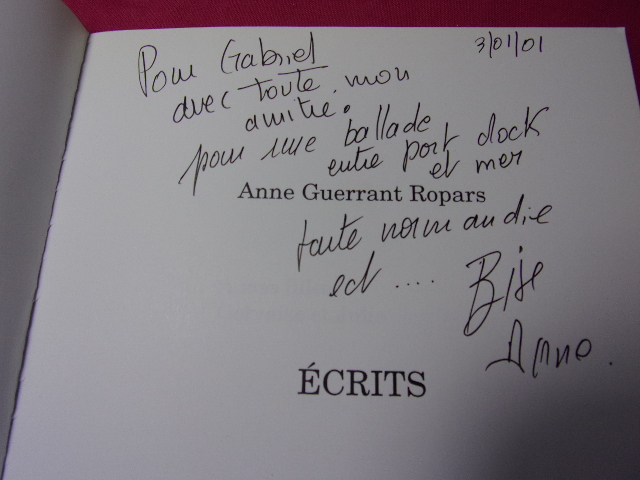 3/01/01
Pour Gabriel
avec toute mon
amitié.
pour une ballade
entre port dock
et mer
Anne Guerrant Ropars
toute normandie
est ....
Bise
Anne.
ÉCRITS